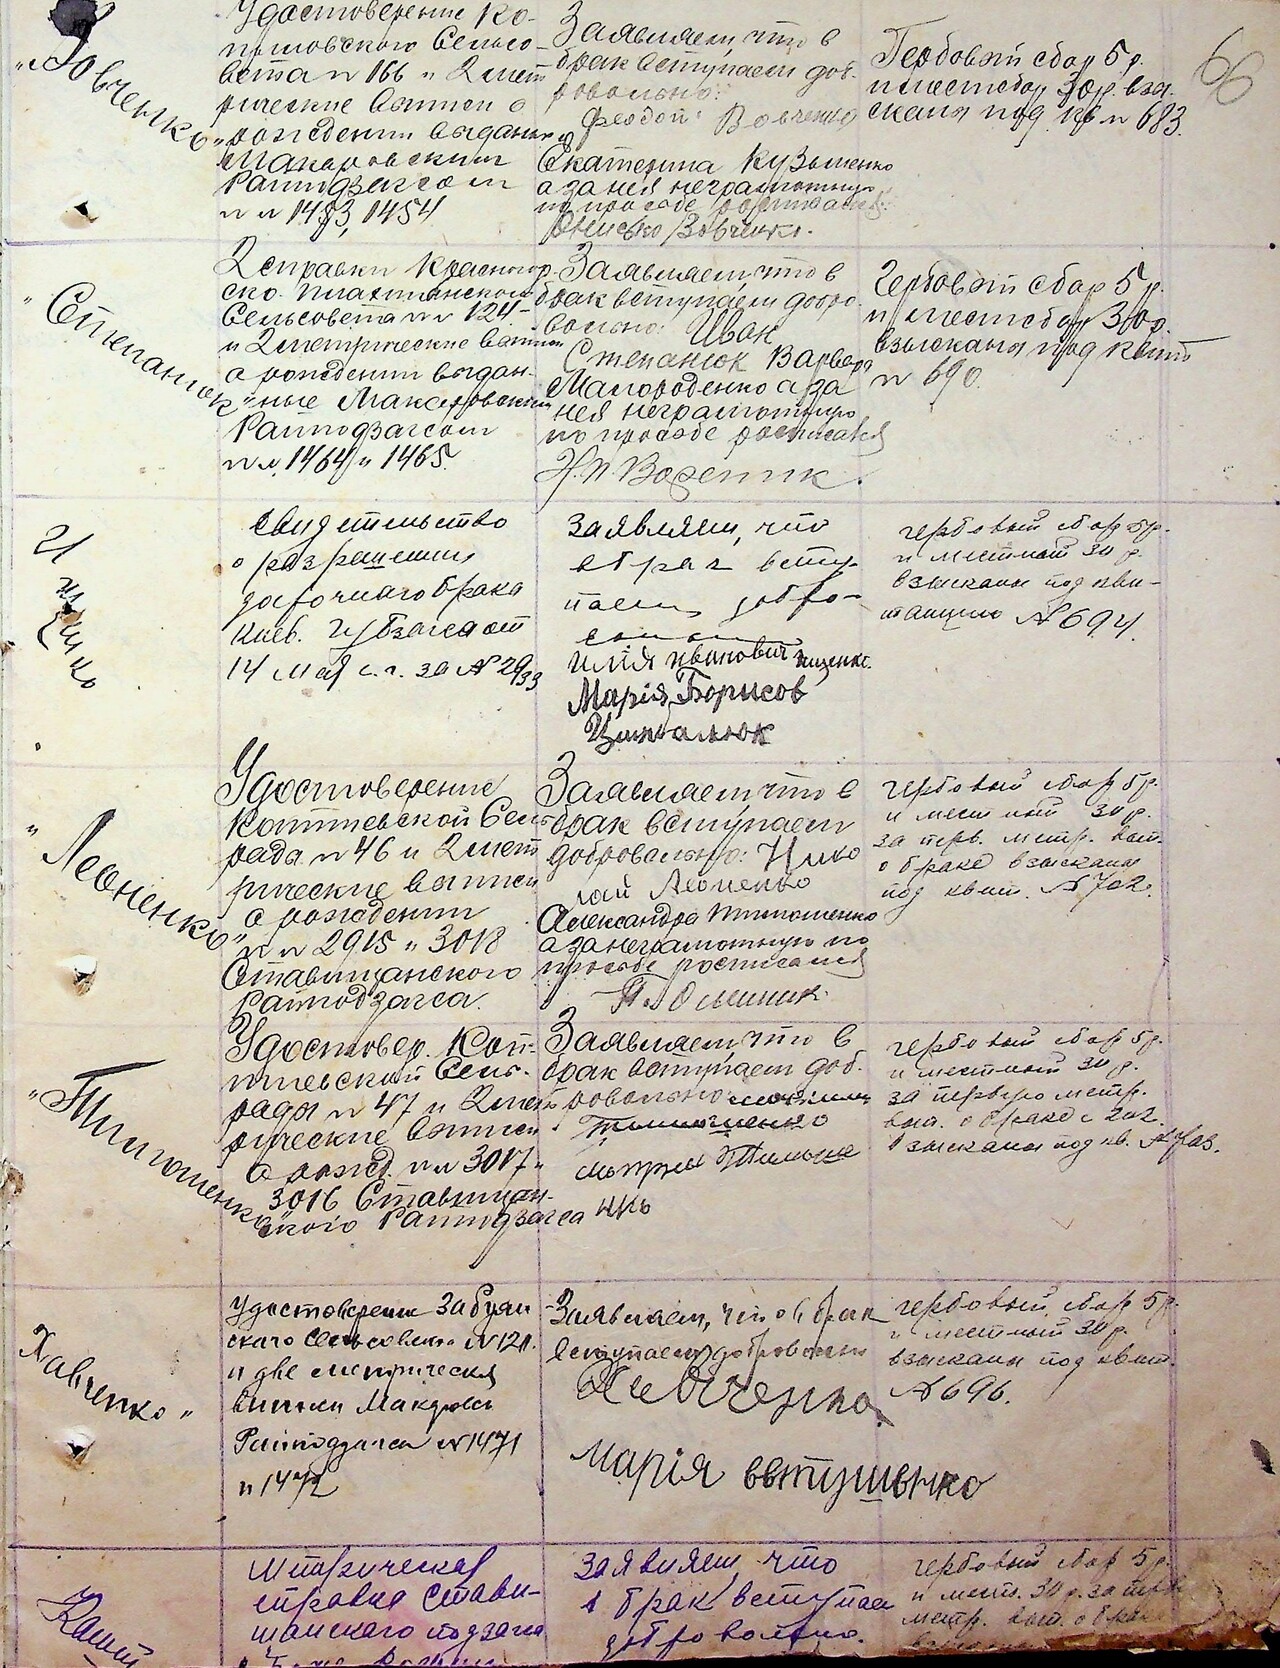 66
"Вовченко"
Удостоверение Ко-
вета № 166 и 2 мет
рические выписи о
рождении выданные
Макаровским
Райподзагсом
№№ 1483, 1454
Заявляем, что в
брак вступаем доб-
ровольно:
Феодой Вовченко
Екатерина Кузьменко
а за нея неграмотную
по просьбе
Вовченко.
Гербовый сбор 5 р.
и местсбор 30 р. взы-
сканы под кв № 683.
"Степанюк"
2 справки Красногор-
ско.
Сельсовета №№ 124-
и 2 метрические выписи
о рождении выдан-
ные Макаровским
Райподзагсом
№№ 1464 и 1465.
Заявляем, что в
брак вступаем добро-
вольно: Иван
Степанюк Варвара
а за
нея неграмотную
по просьбе росписался
Гербовый сбор 5 р.
и местсбор 30 р.
взысканы под квит
№ 690.
Свидетельство
о разрешении
досрочнаго брака
Киев. Губзагса от
14 мая с.г. за № 2933
Заявляем, что
в брак всту-
паем добро-
Илія Иванович
Марія Борисов
Цимбалюк
гербовый сбор 5 р.
и местный 30 р.
взысканы под кви-
танцию № 694.
"Леоненко"
Удостоверение
Сель-
рада № 46 и 2 мет
рические выписи
о рождении
№№ 2915 и 3018
Ставищанского
Райподзагса.
Заявляем, что в
брак вступаем
добровольно: Нико
лай Леоненко
Александра Тимошенко
а за неграмотную по
просьбе росписался
гербовый сбор 5 р.
и местный 30 р.
за перв. метр. вып.
о браке взысканы
под квит. № 702.
"Тимошенко"
Удостовер.
Сель-
рады № 47 и 2 мет
рические выписи
о рожд. №№ 3017 и
3016 Ставищан-
ского Райподзагса
Заявляем, что в
брак вступаем доб-
ровольно:
Тимошенко
гербовый сбор 5 р.
и местный 30 р.
за первую метр.
вып. о браке
взысканы под кв. № 703.
Хавченко"
Удостоверение Забуян
скаго сельсовета № 120.
и две метрическия
выписи Макаровск
Райподзагса № 1471
и 1472
Заявляем, что в брак
вступаем добровольно
Хавченко
Марія Евтушенко
гербовый сбор 5 р.
и местный 30 р.
взысканы под квит.
№ 696.
Метрическая
справка Стави-
щанскаго подзагса
Заявляем, что
в брак вступаем
добровольно.
гербовый сбор 5 р.
и местн. 30 р. за перв
метр. вып. о браке